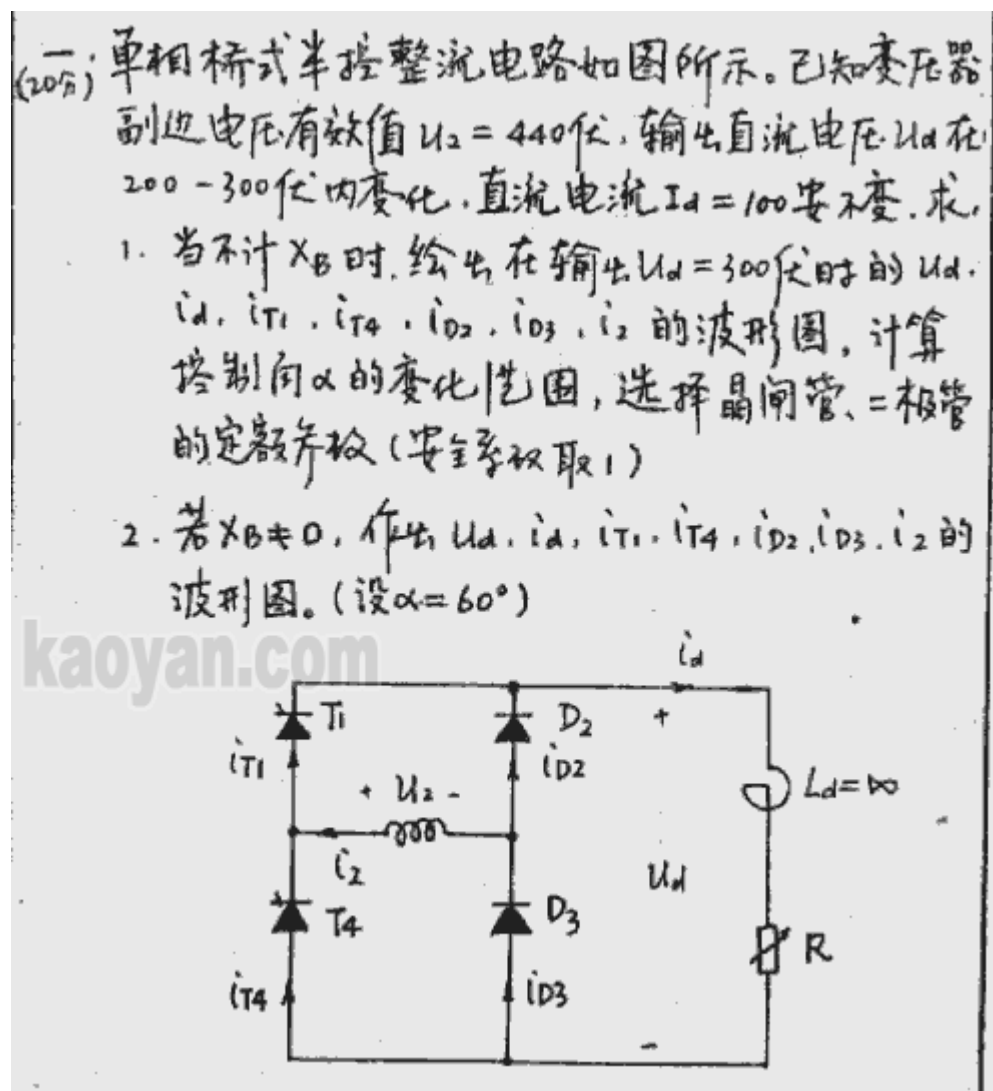 一、单相桥式半控整流电路如图所示。已知变压器
(20分)
副边电压有效值 U2 = 440伏, 输出直流电压 Ud 在
200-300伏内变化, 直流电流 Id = 100安不变. 求,
1. 当不计 XB 时, 绘出在输出 Ud = 300伏时的 ud.
id. iT1. iT4. iD2. iD3. i2 的波形图, 计算
控制角α的变化范围, 选择晶闸管、二极管
的定额参数 (安全系数取1)
2. 若 XB≠0, 作出 ud. id. iT1. iT4. iD2. iD3. i2 的
波形图。(设α=60°)
kaoyan.com
id
T1 D2 +
iT1 iD2
+ U2 - Ld=∞
i2 Ud
T4 D3 R
iT4 iD3
-